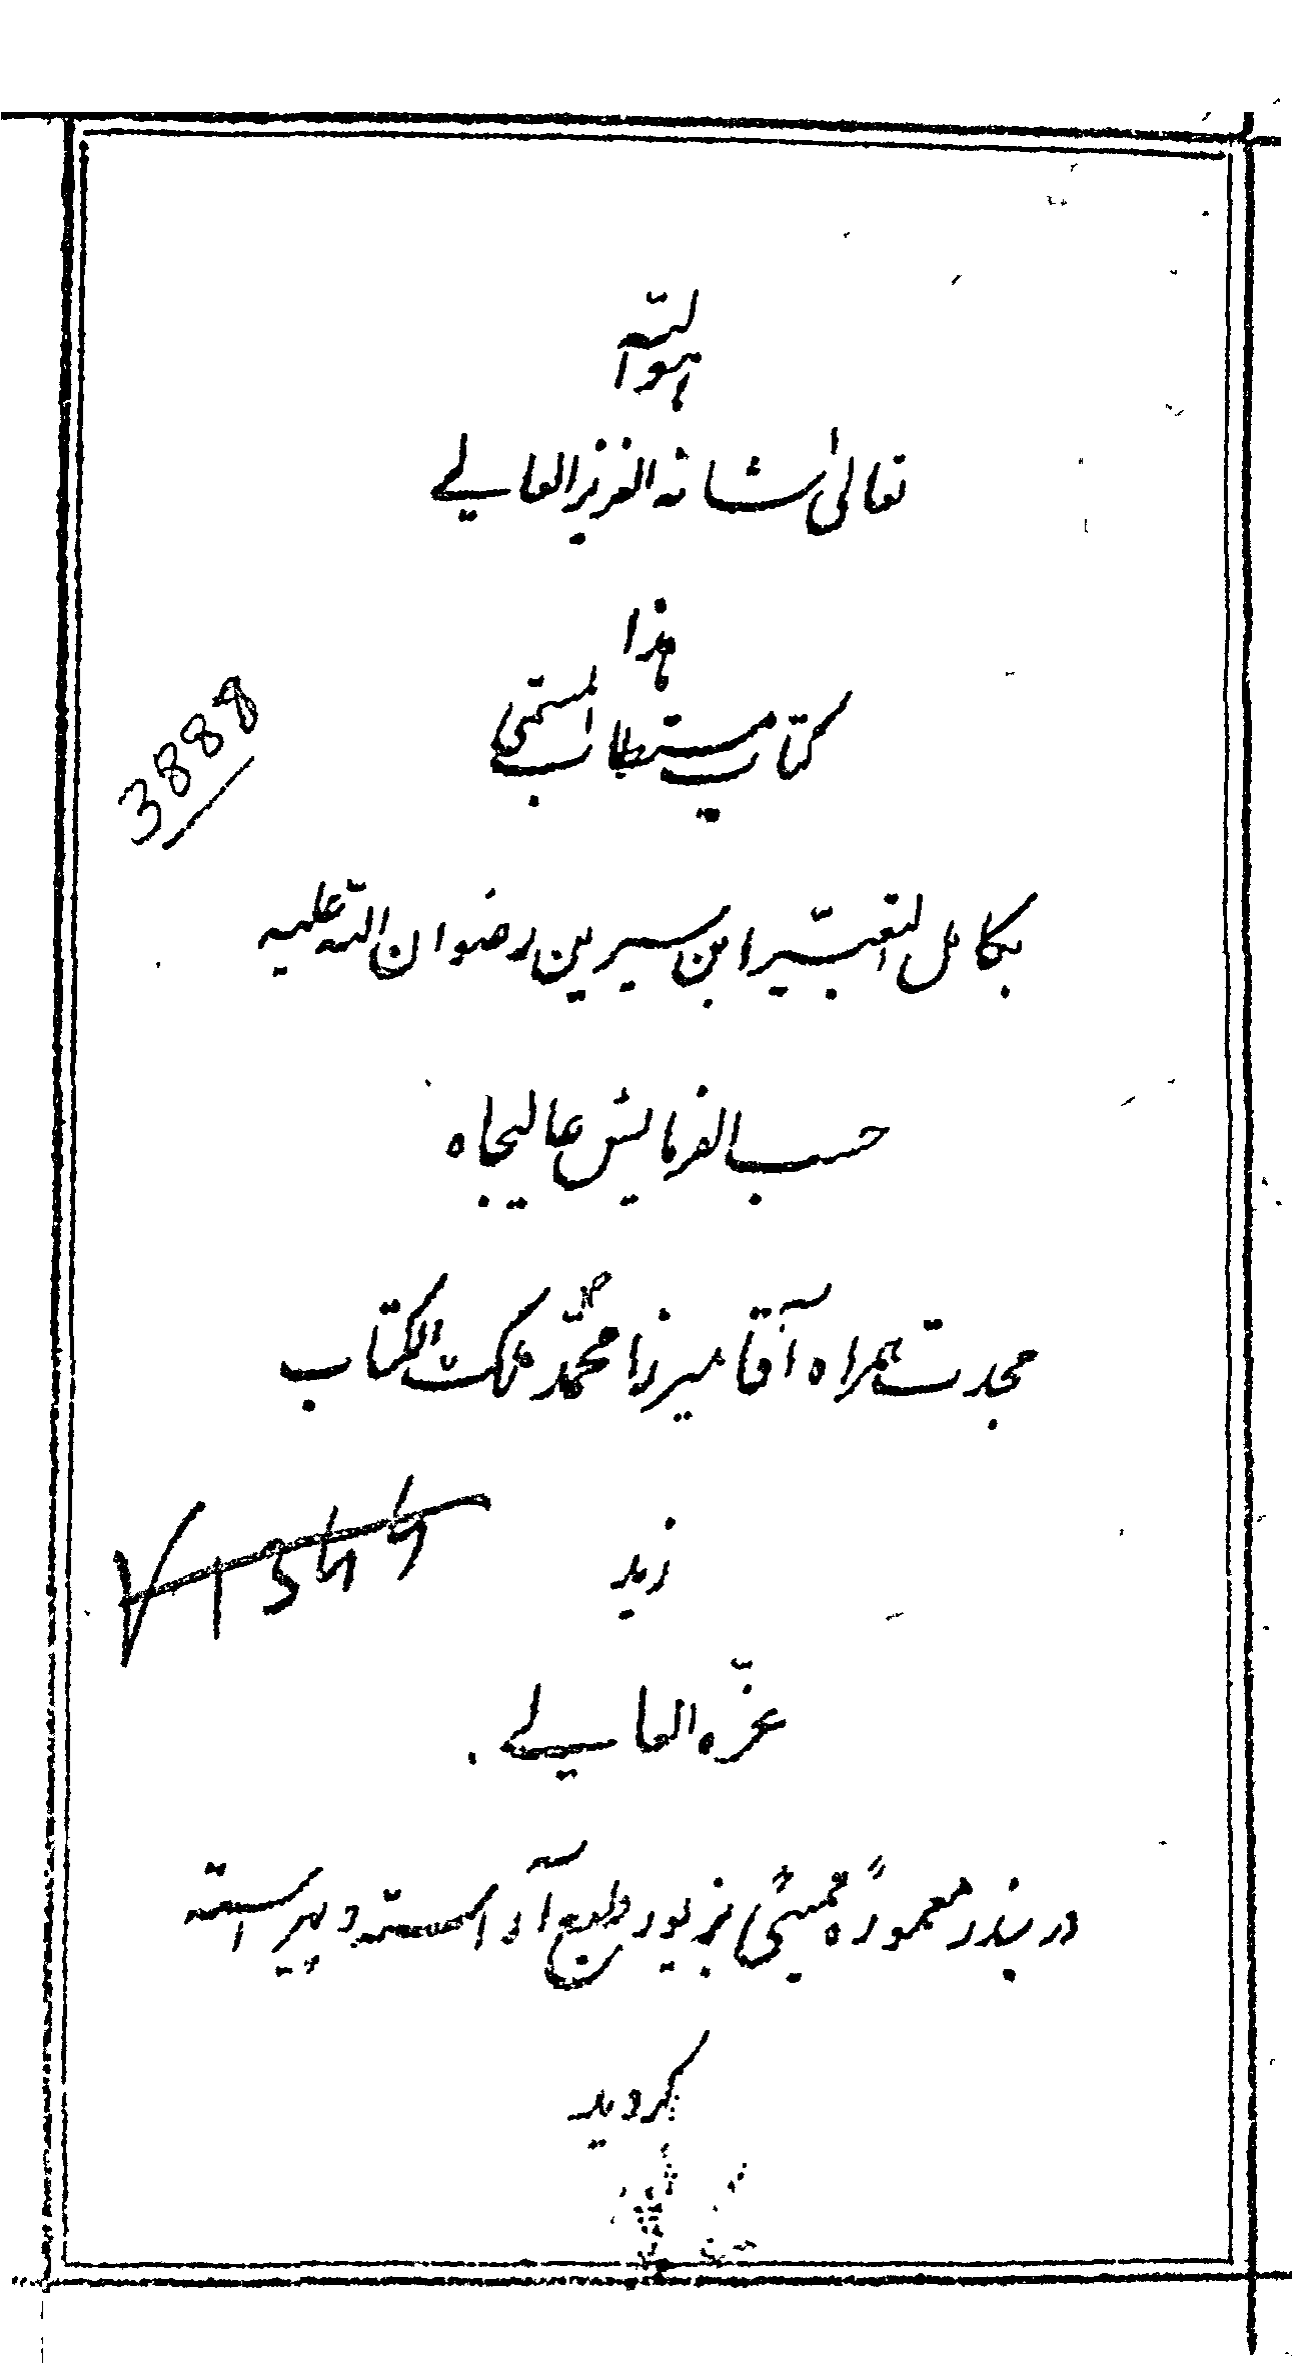 هو الله
تعالی شانه العزیز العالی
هذا
کتاب مستطاب المسمی
3888
بکامل التعبیر ابن سیرین رضوان الله علیه
حسب الفرمایش عالیجاه
مجدت همراه آقا میرزا محمد ملک الکتاب
زید
عزّه العالی
در بندر معمورهٔ بمبئی بزیور طبع آراسته و پیراسته
کردید